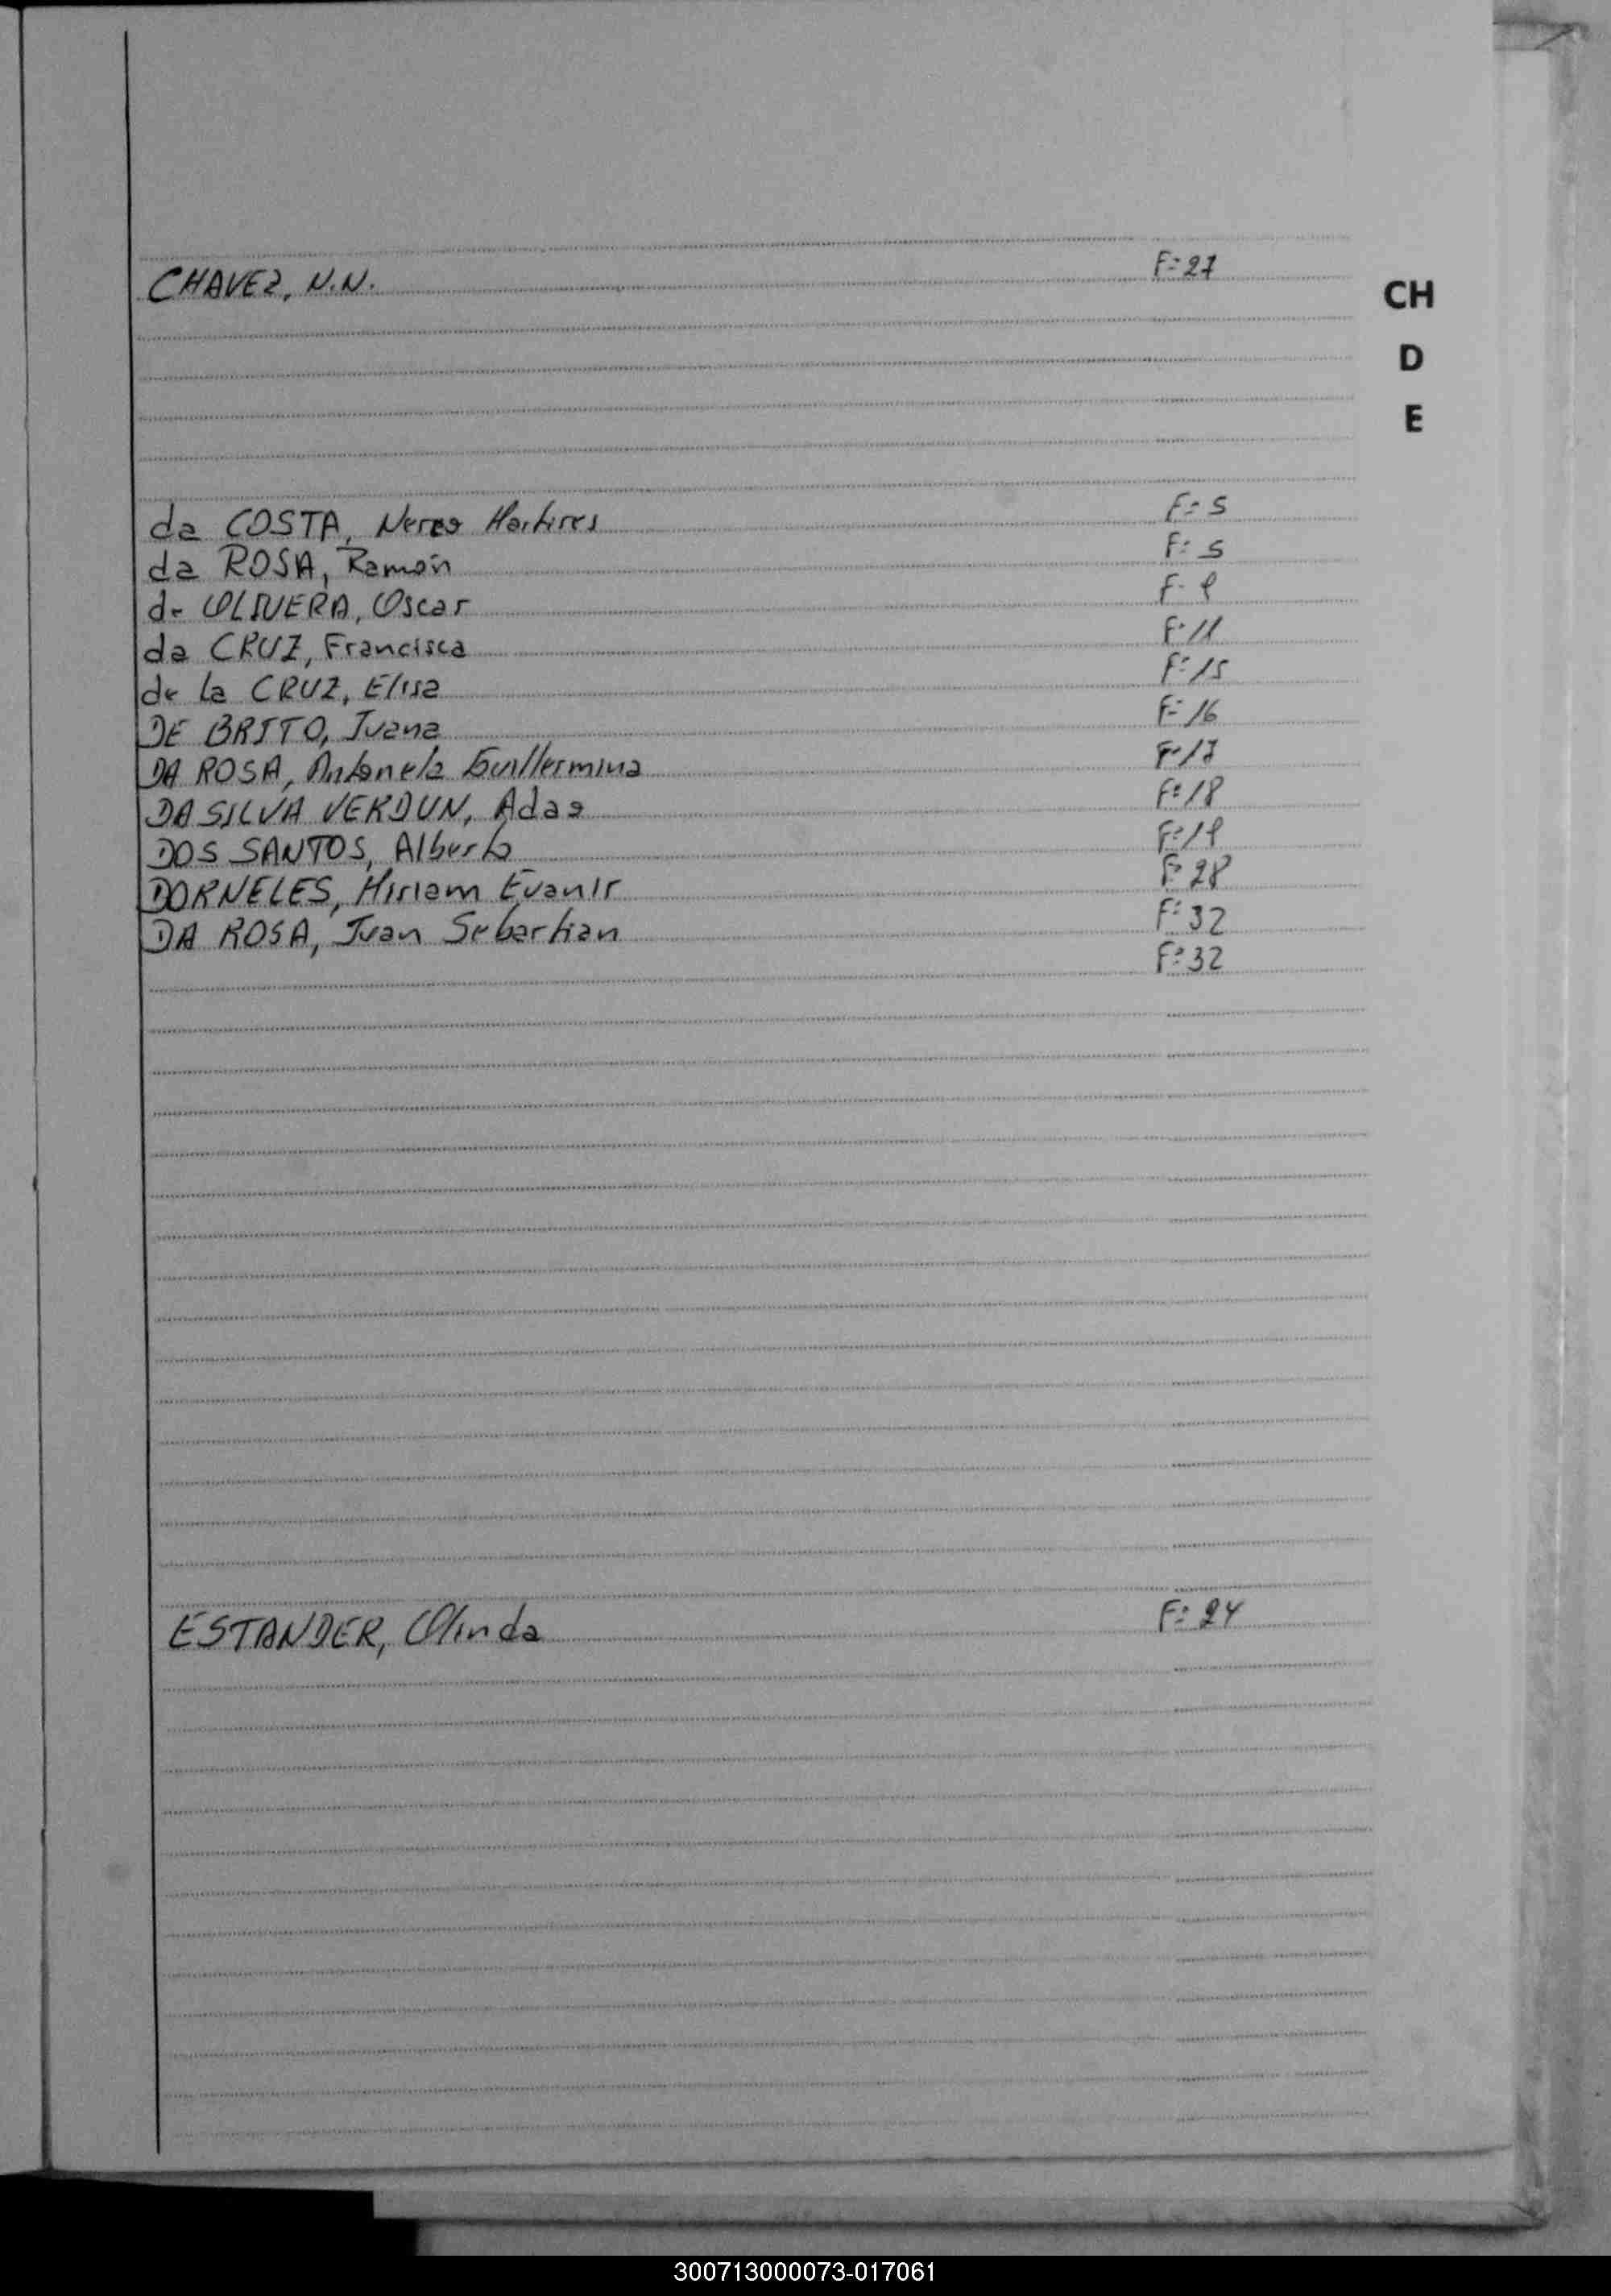 CHAVEZ, N.N. F=27
CH
D
E
da COSTA, Nereo Martires F=5
da ROSA, Ramón F:5
de OLIVERA, Oscar F-9
da CRUZ, Francisca F:11
de la CRUZ, Elisa F=15
DE BRITO, Juana F=16
DA ROSA, Antonela Guillermina F=17
DA SILVA VERDUN, Adao F:18
DOS SANTOS, Alberto F=19
DORNELES, Miriam Evanir F=28
DA ROSA, Juan Sebastian F:32
F:32
ESTANDER, Olinda F:24
300713000073-017061